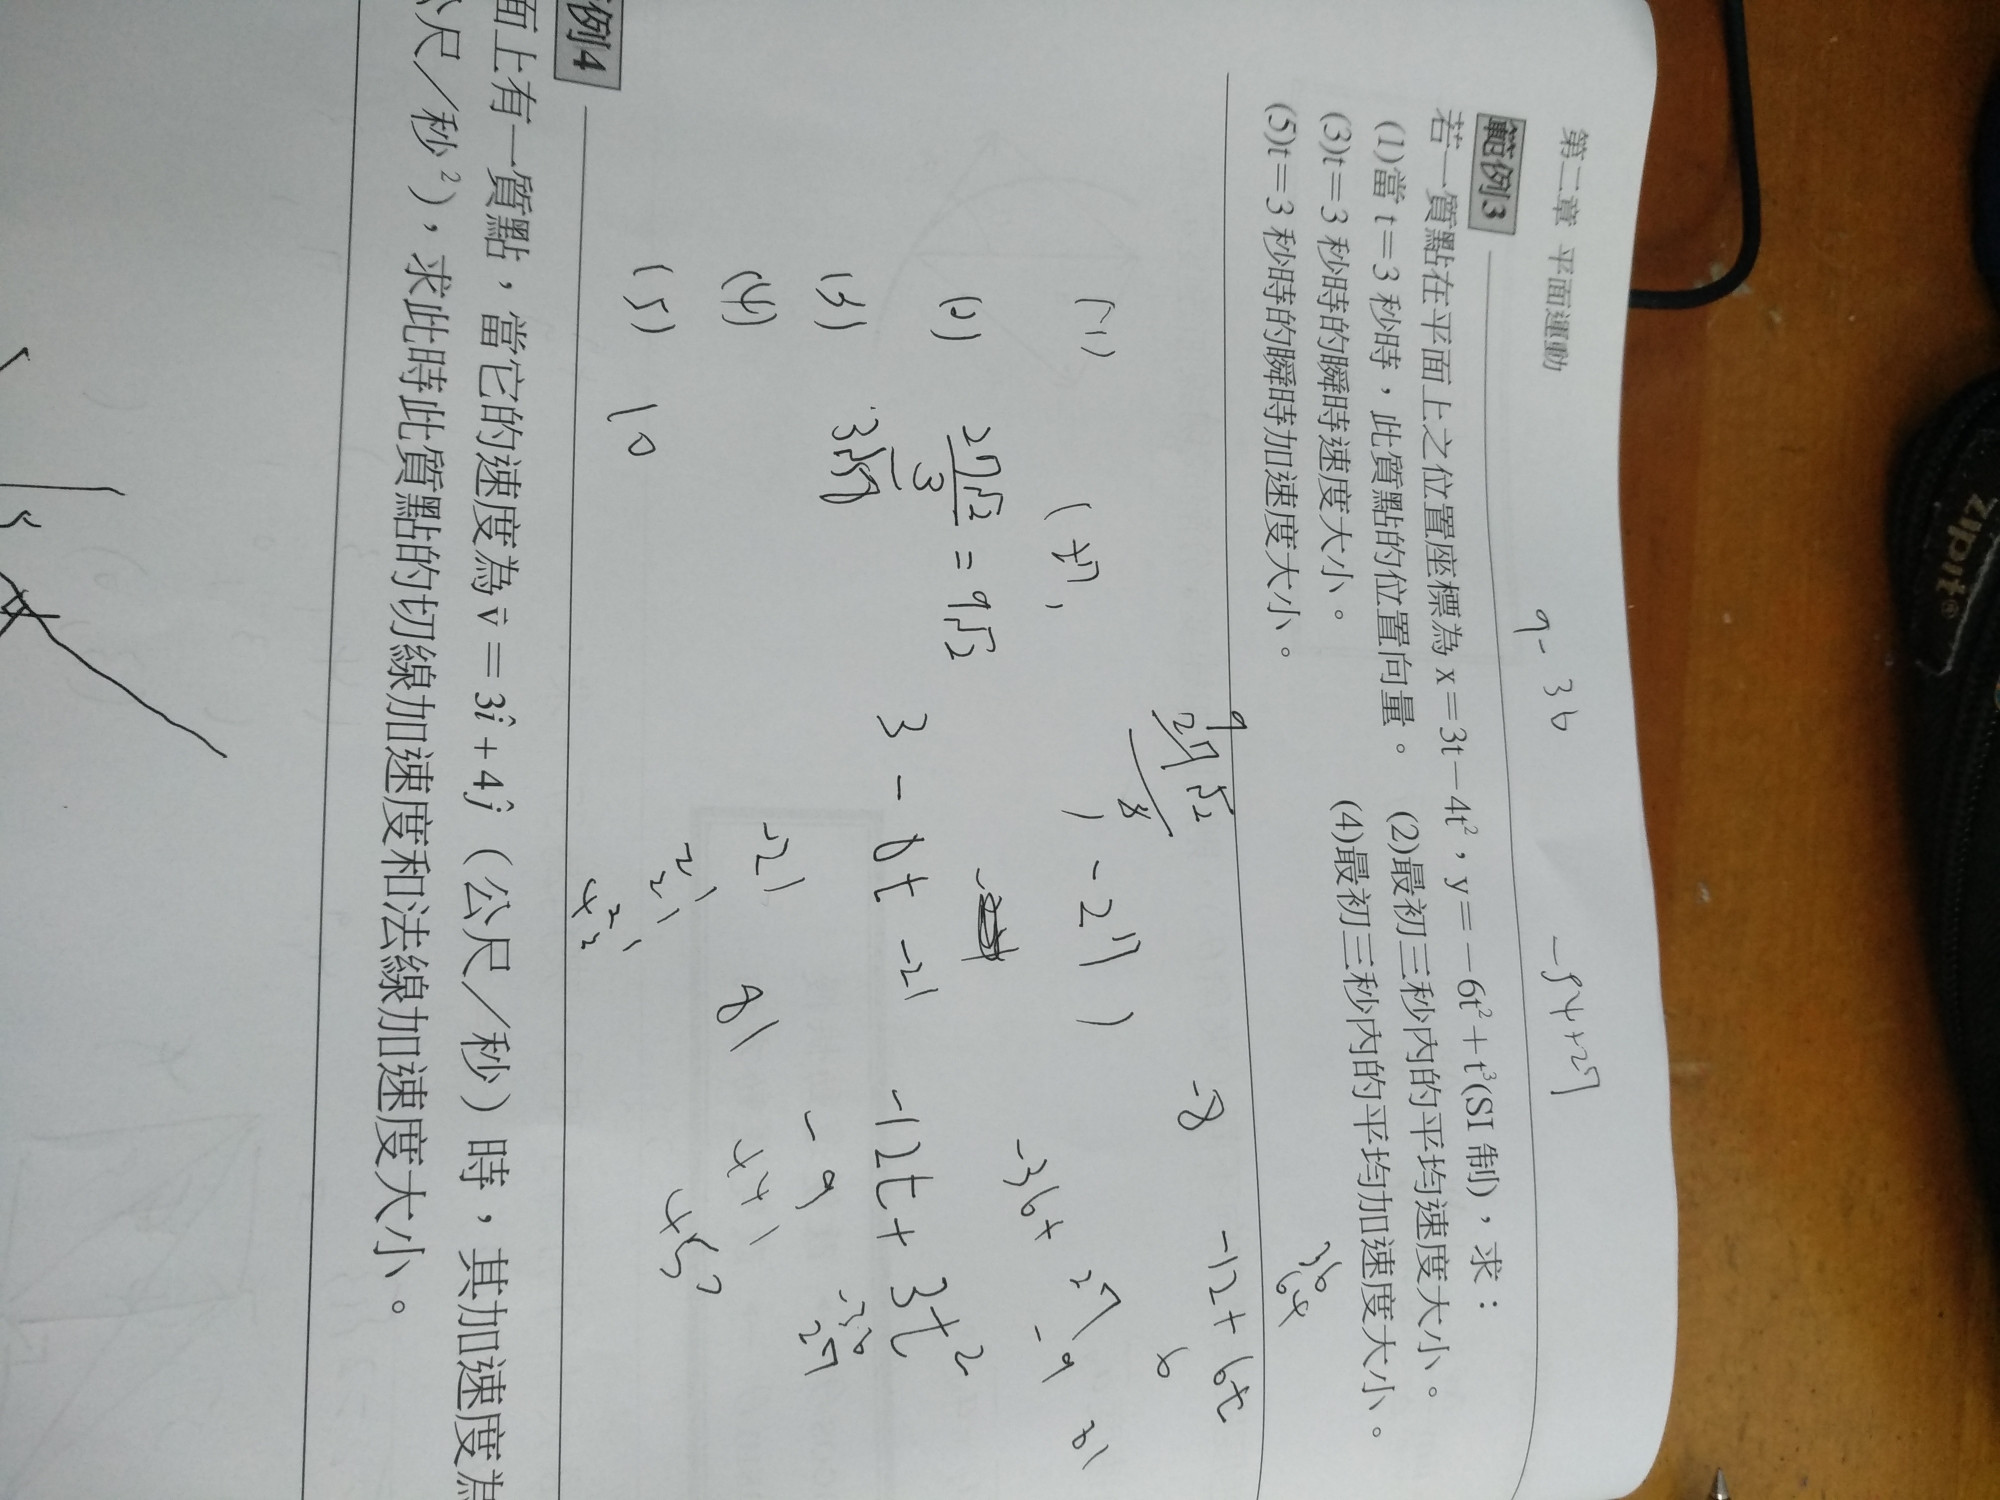 zipit®
9-36
-54+27
第二章 平面運動
範例3
若一質點在平面上之位置座標為 x=3t-4t²,y=-6t²+t³(SI 制),求:
(1)當 t=3 秒時,此質點的位置向量。 (2)最初三秒內的平均速度大小。
(3)t=3 秒時的瞬時速度大小。 (4)最初三秒內的平均加速度大小。
(5)t=3 秒時的瞬時加速度大小。
36
64
-8 -12+6t
6
(1) , -27)
-36+27 -9 81
(2) 27√2/3 = 9√2
3-8t -21 -12t+3t²
(3)
-36
27
-21 -9
(4)
81
441
21
21
(5) 10
42
範例4
面上有一質點,當它的速度為 v⃗=3î+4ĵ(公尺/秒)時,其加速度為
公尺/秒²),求此時此質點的切線加速度和法線加速度大小。